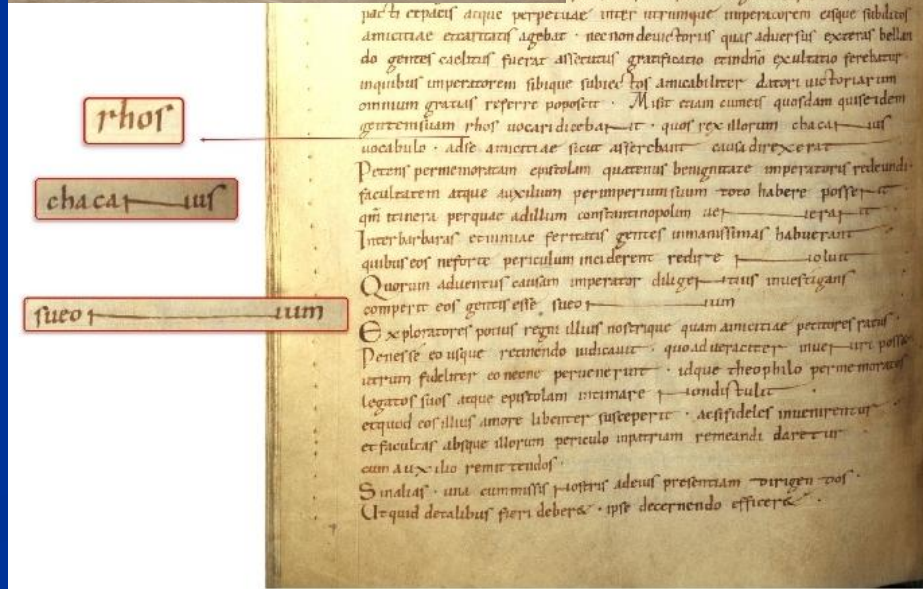 pacti et pacis atque perpetuae inter utrumque imperatorem eique subditos
amicitiae et caritatis agebat · nec non de victoriis quas adversus exteras bellan
do gentes caelitus fuerat assecutus gratificatio et in dño exultatio ferebatur
in quibus imperatorem sibique subiectos amicabiliter datori victoriarum
omnium gratias referre poposcit · Misit etiam cum eis quosdam qui se idem
gentem suam rhos vocari dicebant · quos rex illorum chacanus
rhos
vocabulo · ad se amicitiae sicut asserebant causa direxerat
Petens per memoratam epistolam quatenus benignitate imperatoris redeundi
chacanus
facultatem atque auxilium per imperium suum toto habere possent
qm̄ itinera per quae ad illum constantinopolim venerant
Inter barbaras et nimiae feritatis gentes inmanissimas habuerant
quibus eos ne forte periculum inciderent redire noluit
Quorum adventus causam imperator diligentius investigans
comperit eos gentis esse sueonum
sueonum
Exploratores potius regni illius nostrique quam amicitiae petitores ratus
Penes se eo usque retinendo iudicavit · quo ad veraciter inveniri posset
utrum fideliter eo necne pervenerint · idque theophilo per memoratos
legatos suos atque epistolam intimare non distulit
et quod eos illius amore libenter susceperit · ac si fideles invenirentur
et facultas absque illorum periculo in patriam remeandi daretur
cum auxilio remittendos ·
Sin alias · una cum missis nostris ad eius presentiam dirigendos ·
Ut quid de talibus fieri deber& · ipse decernendo efficer& ·